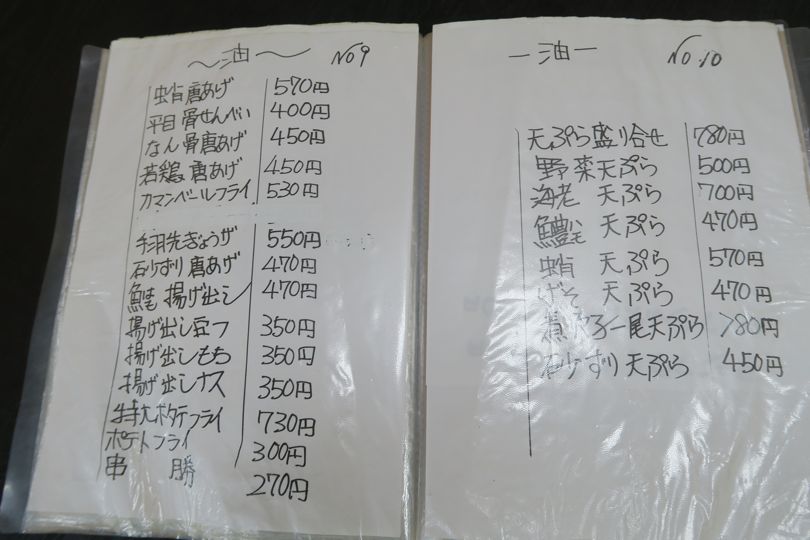 〜油〜 No 9
蛸唐あげ 570円
平目骨せんべい 400円
なん骨唐あげ 450円
若鶏唐あげ 450円
カマンベールフライ 530円
手羽先ぎょうザ 550円
砂ずり唐あげ 470円
揚げ出し 470円
揚げ出し豆フ 350円
揚げ出しもち 350円
揚げ出しナス 350円
特大ポテフライ 730円
ポテトフライ 300円
串勝 270円
ー油ー No.10
天ぷら盛り合せ 780円
野菜天ぷら 500円
海老 天ぷら 700円
鱧 天ぷら 470円
蛸 天ぷら 570円
げそ 天ぷら 470円
一尾天ぷら 780円
砂ずり天ぷら 450円